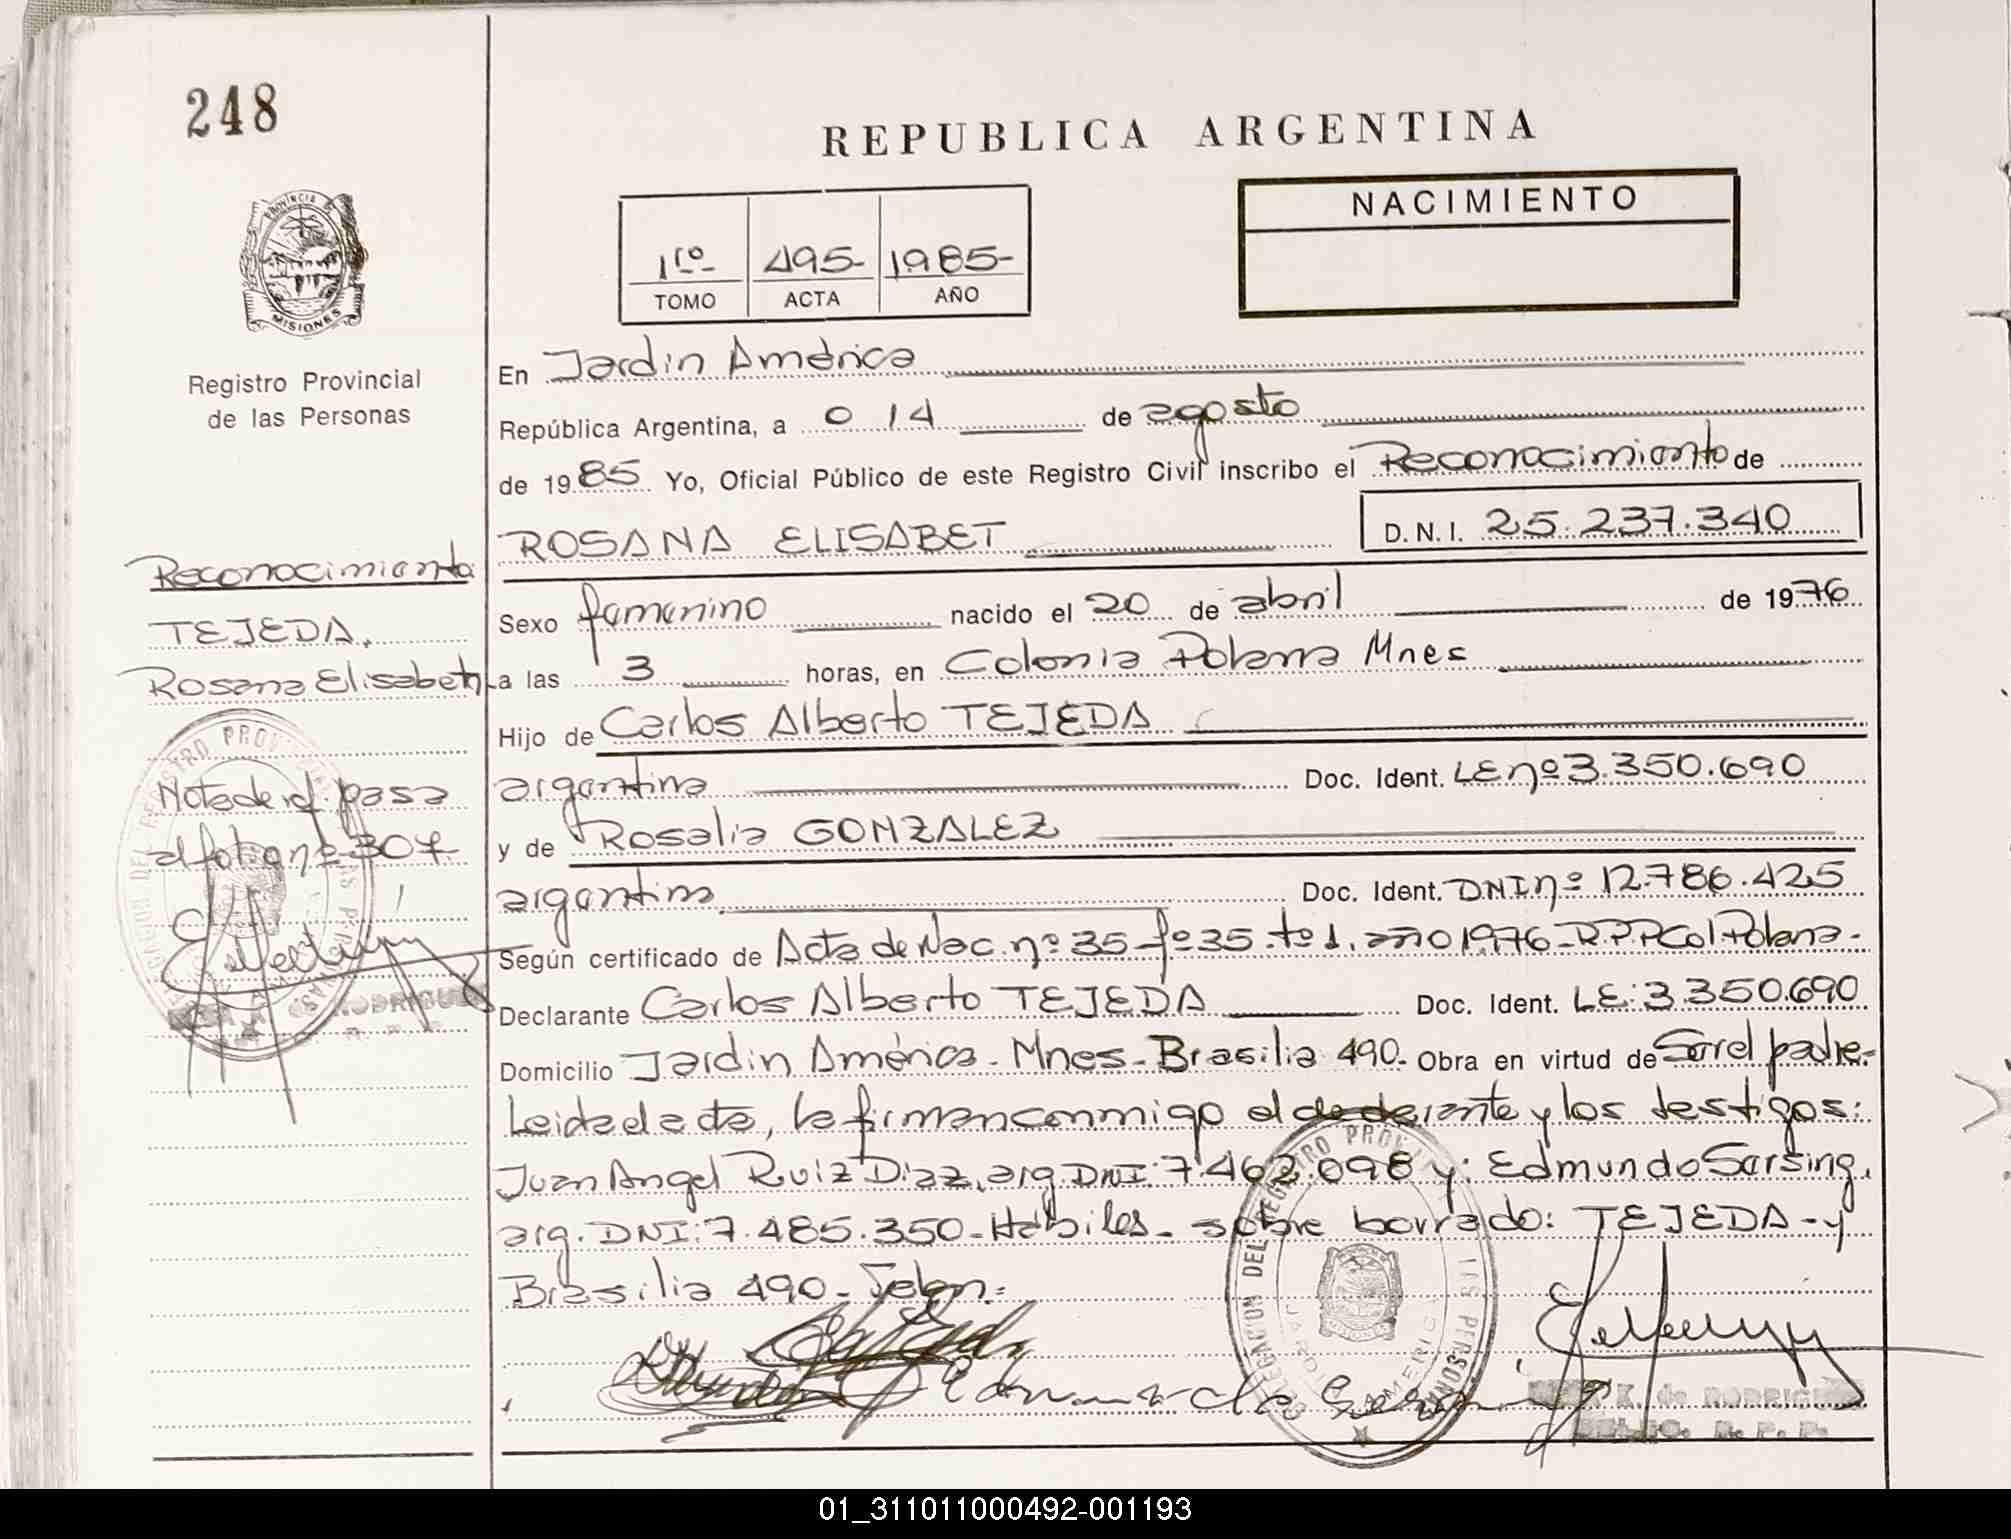 248
REPUBLICA ARGENTINA
NACIMIENTO
1ro 495- 1985-
TOMO ACTA AÑO
PROVINCIA DE
MISIONES
Registro Provincial
de las Personas
En Jardin América
República Argentina, a 0 14 de agosto
de 1985 Yo, Oficial Público de este Registro Civil inscribo el Reconocimiento de
ROSANA ELISABET D.N.I. 25.237.340
Reconocimiento
TEJEDA,
Rosana Elisabeth
Nota de ref. pasa
al folio nº 307
Sexo femenino nacido el 20 de abril de 1976
a las 3 horas, en Colonia Polana Mnes
Hijo de Carlos Alberto TEJEDA
argentina Doc. Ident. LE nº 3.350.690
y de Rosalia GONZALEZ
argentina Doc. Ident. DNI nº 12.786.425
Según certificado de Acta de Nac. nº 35 fº 35. tº 1. año 1976 - R.P.P Col Polana -
Declarante Carlos Alberto TEJEDA Doc. Ident. LE: 3.350.690
Domicilio Jardin América - Mnes - Brasilia 490 - Obra en virtud de Ser el padre.-
Leida el acta, la firman conmigo el declarante y los testigos:
Juan Angel Ruiz Diaz, arg. DNI: 7.462.098 y: Edmundo Sarsing,
arg. DNI: 7.485.350 - Hábiles - sobre borrado: TEJEDA - y
Brasilia 490 - Valen:
DELEGACION DEL REGISTRO PROVINCIAL DE LAS PERSONAS
JARDIN AMERICA
MISIONES
Edmundo
K. de RODRIGUEZ
R. P. P.
01_311011000492-001193